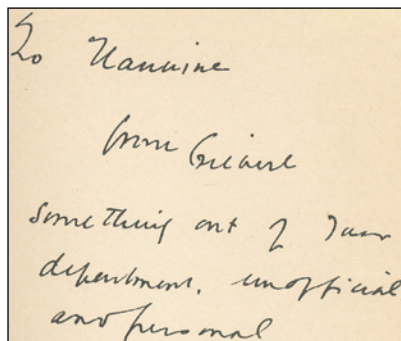 To Nannine
from Gilbert
Something out of your
department, unofficial
and personal